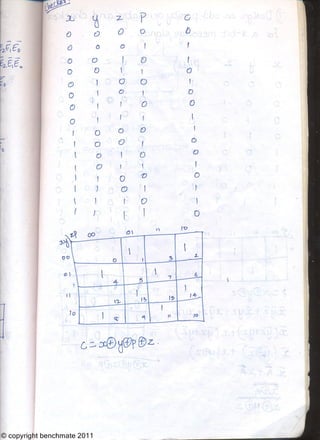 Checker
x y z p c
0 0 0 0 0
0 0 0 1 1
0 0 1 0 1
0 0 1 1 0
0 1 0 0 1
0 1 0 1 0
0 1 1 0 0
0 1 1 1 1
1 0 0 0 1
1 0 0 1 0
1 0 1 0 0
1 0 1 1 1
1 1 0 0 0
1 1 0 1 1
1 1 1 0 1
1 1 1 1 0
xy zp 00 01 11 10
00 0 1 1 3 1 2
01 1 4 5 1 7 6
11 12 1 13 15 1 14
10 1 8 9 1 11
C = x⊕y⊕p⊕z.
© copyright benchmate 2011